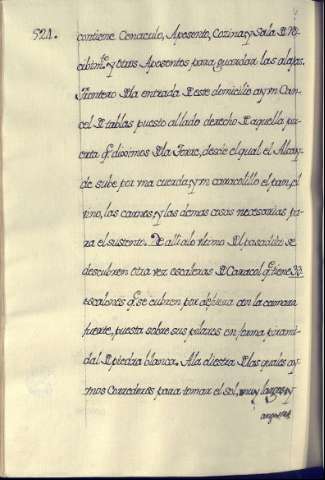 521. contiene Cenaculo, Aposento, Cozina, y Sala de Re-
cibimto, y otros Aposentos para guardar las alajas.
Frontero de la entrada de este domicilio ay un Can-
cel de tablas puesto al lado derecho de aquella pu-
erta q diximos de la Torre, desde el qual el Alcay-
de sube por una cuerda, y un caracolillo el pan, el
vino, las carnes, y las demas cosas necesarias pa-
ra el sustento. De alli a lo ultimo del pasadito se
descubren otra vez escaleras de Caracol q tiene 38
escalones q se cubren por defuera con la camara
fuerte, puesta sobre sus pilares en forma pirami-
dal de piedra blanca. A la diestra de las quales ay
unos Corredores para tomar el sol, muy largos, y